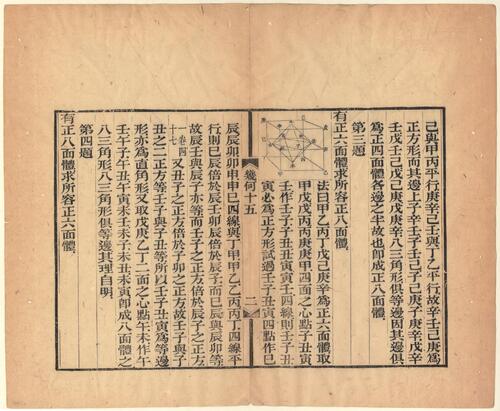 己與甲丙平行庚辛己壬與丁乙平行故辛壬己庚爲
正方形而其邊上子辛壬子壬己子己庚子庚辛戊辛
壬戊壬己戊己庚戊庚辛八三角形俱等邊因其邊俱
爲正四面體各邊之半故也卽成正八面體
第三題
有正六面體求所容正八面體
法曰甲乙丙丁戊己庚辛爲正六面體取
甲戊戊丙丙庚庚甲四面之心點子丑寅
壬作壬子子丑丑寅寅壬四線則壬子丑
寅必爲正方形試過壬子丑寅四點作巳
幾何十五
二
辰辰卯卯申申巳四線與丁甲甲乙乙丙丙丁四線平
行則巳辰倍於辰壬辰卯倍於辰子而巳辰與辰卯等
故辰壬與辰子亦等而壬子之正方倍於辰子之正方
一卷四十七又丑子之正方倍於子卯之正方故壬子與子
丑之二正方等壬子與丑子等所以壬子丑寅爲正方
形亦爲直角形又取戊庚乙丁二面之心點午未作午
壬午子午丑午寅未壬未子未丑未寅卽成八面體之
八三角形八三角形俱等邊其理自明
第四題
有正八面體求所容正六面體